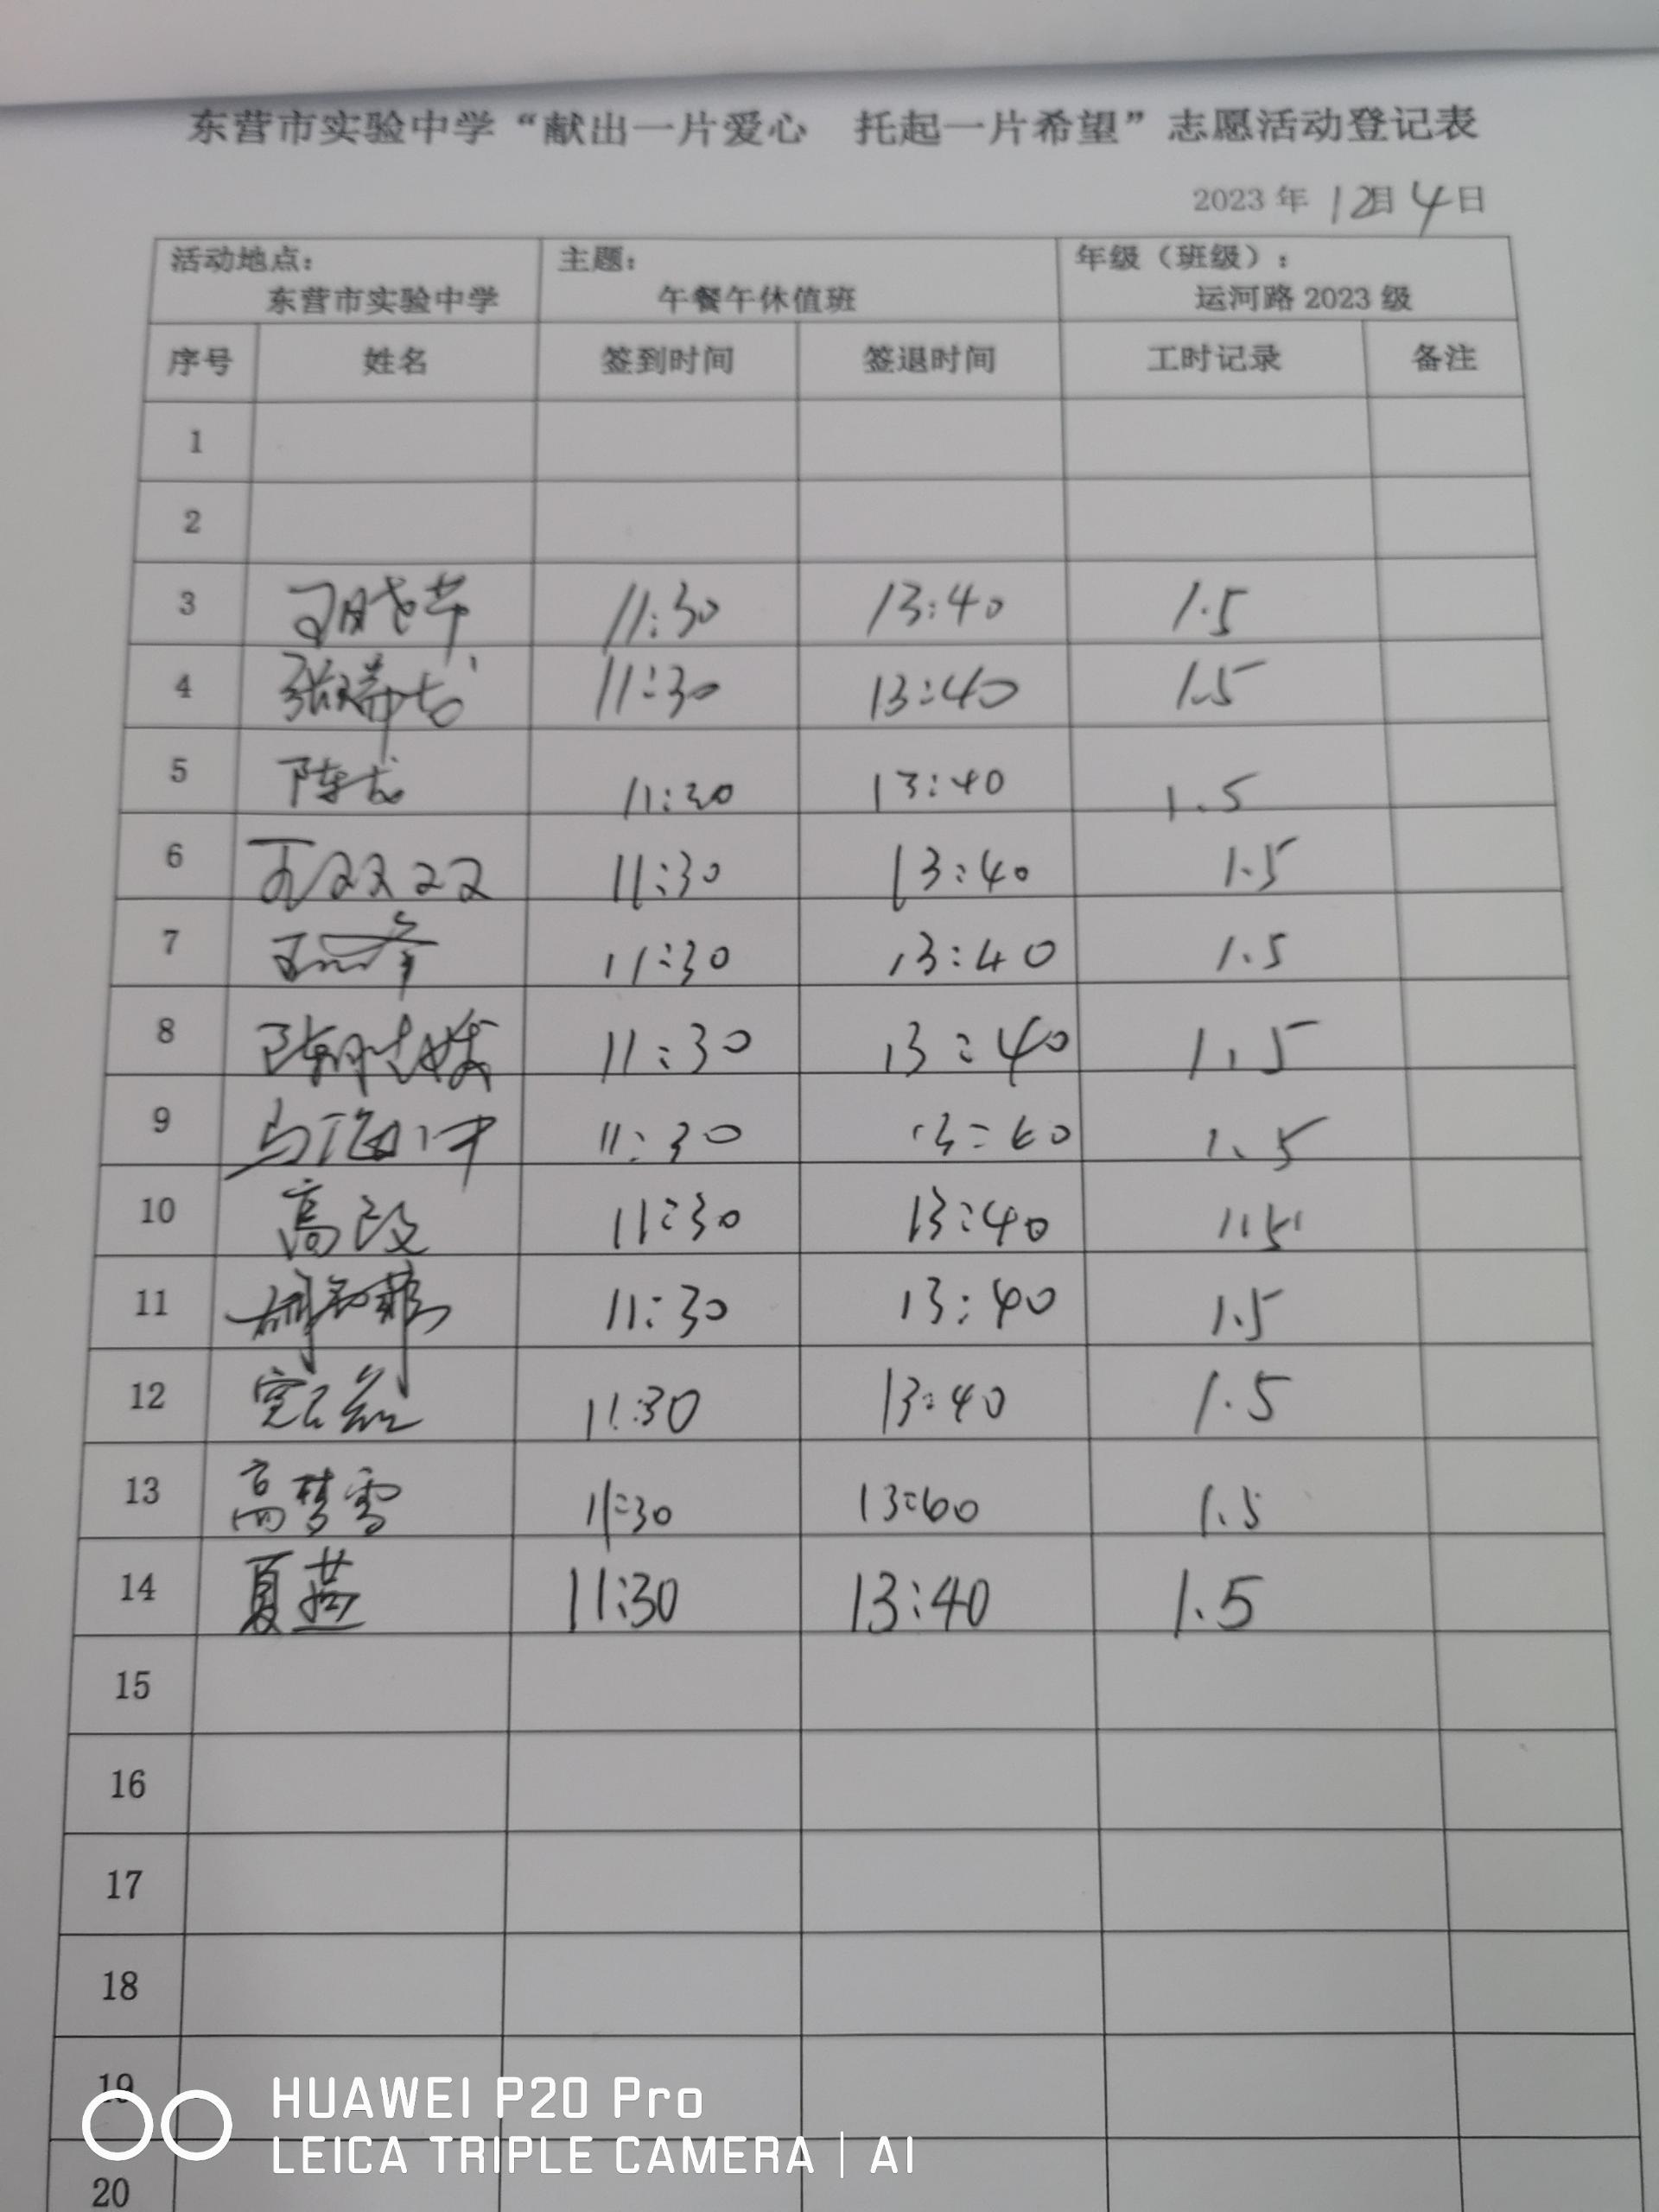 东营市实验中学“献出一片爱心　托起一片希望”志愿活动登记表
2023 年 12月 4日
活动地点： 主题： 年级（班级）：
东营市实验中学 午餐午休值班 运河路 2023 级
序号 姓名 签到时间 签退时间 工时记录 备注
1
2
3 11:30 13:40 1.5
4 张瑞 11:30 13:40 1.5
5 陈龙 11:30 13:40 1.5
6 11:30 13:40 1.5
7 11:30 13:40 1.5
8 陈晓 11:30 13:40 1.5
9 马海 11:30 13:40 1.5
10 高政 11:30 13:40 1.5
11 11:30 13:40 1.5
12 11:30 13:40 1.5
13 高梦雪 11:30 13:60 1.5
14 夏燕 11:30 13:40 1.5
15
16
17
18
19
HUAWEI P20 Pro
LEICA TRIPLE CAMERA | AI
20